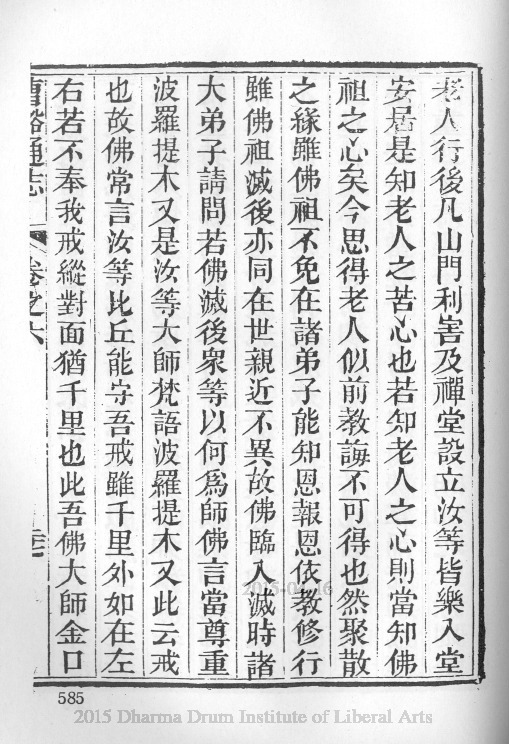 老人行後凡山門利害及禪堂設立汝等皆樂入堂
安居是知老人之苦心也若知老人之心則當知佛
祖之心矣今思得老人似前教誨不可得也然聚散
之緣雖佛祖不免在諸弟子能知恩報恩依教修行
雖佛祖滅後亦同在世親近不異故佛臨入滅時諸
大弟子請問若佛滅後衆等以何爲師佛言當尊重
波羅提木叉是汝等大師梵語波羅提木叉此云戒
也故佛常言汝等比丘能守吾戒雖千里外如在左
右若不奉我戒縱對面猶千里也此吾佛大師金口
曹谿通志 卷之六
585
2015 Dharma Drum Institute of Liberal Arts